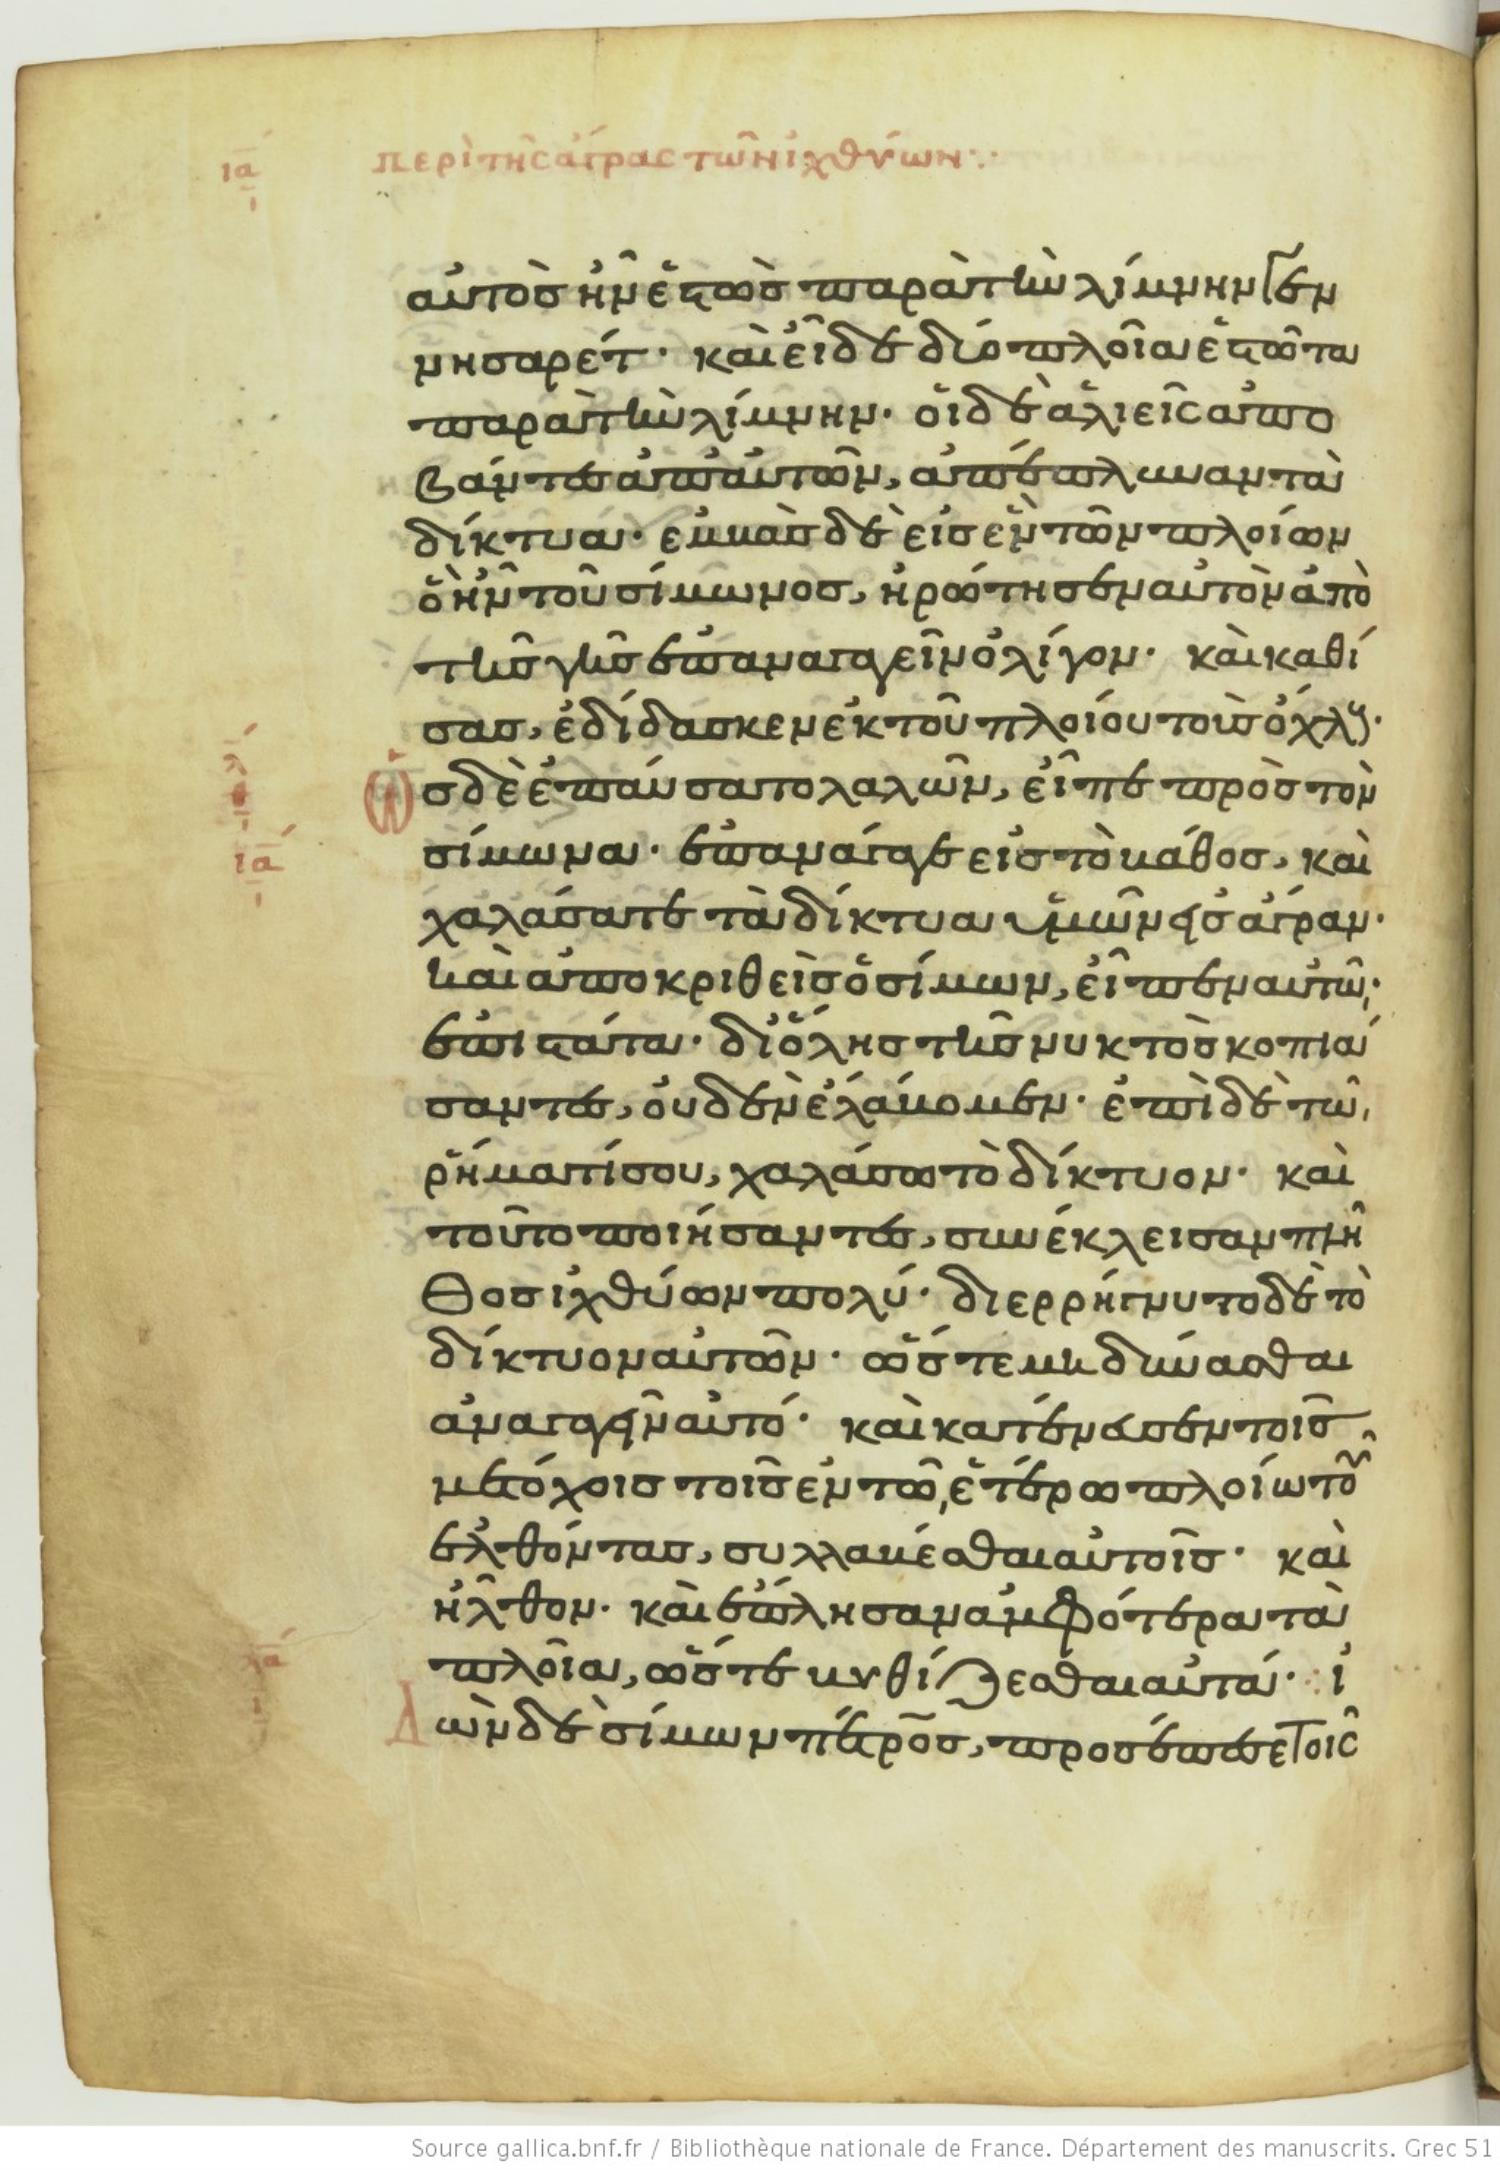 ια περὶ τῆς ἄγρας τῶν ἰχθύων
αὐτὸς ἦν ἑστὼς παρὰ τὴν λίμνην γεν
νησαρέτ· καὶ εἶδε δύο πλοῖα ἑστῶτα
παρὰ τὴν λίμνην· οἱ δὲ ἁλιεῖς ἀπο
βάντες ἀπ' αὐτῶν, ἀπέπλυναν τὰ
δίκτυα· ἐμβὰς δὲ εἰς ἓν τῶν πλοίων
ὃ ἦν τοῦ σίμωνος, ἠρώτησεν αὐτὸν ἀπὸ
τῆς γῆς ἐπαναγαγεῖν ὀλίγον· καὶ καθί
σας, ἐδίδασκεν ἐκ τοῦ πλοίου τοὺς ὄχλους·
ὡς δὲ ἐπαύσατο λαλῶν, εἶπε πρὸς τὸν
σίμωνα· ἐπανάγαγε εἰς τὸ βάθος, καὶ
ια
χαλάσατε τὰ δίκτυα ὑμῶν εἰς ἄγραν·
καὶ ἀποκριθεὶς ὁ σίμων, εἶπεν αὐτῶ·
ἐπιστάτα· δι' ὅλης τῆς νυκτὸς κοπιά
σαντες, οὐδὲν ἐλάβομεν· ἐπὶ δὲ τῶ
ῥήματί σου, χαλάσω τὸ δίκτυον· καὶ
τοῦτο ποιήσαντες, συνέκλεισαν πλῆ
θος ἰχθύων πολύ· διερρήγνυτο δὲ τὸ
δίκτυον αὐτῶν· ὥστε μὴ δύνασθαι
ἀναγαγεῖν αὐτό· καὶ κατένευσεν τοῖς
μετόχοις τοῖς ἐν τῶ ἑτέρω πλοίω τοῦ
ἐλθόντας, συλλαβέσθαι αὐτοῖς· καὶ
ἦλθον· καὶ ἔπλησαν ἀμφότερα τὰ
πλοῖα, ὥστε βυθίζεσθαι αὐτά· ἰ
δὼν δὲ σίμων πέτρος, προσέπεσε τοῖς